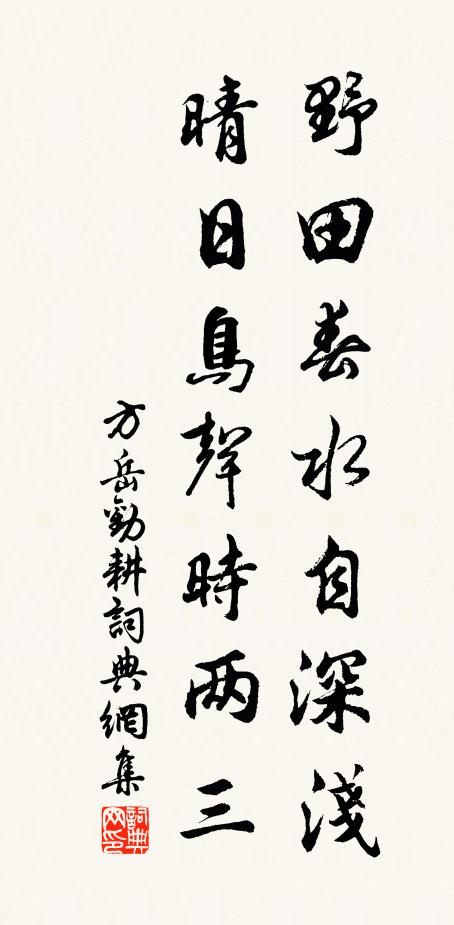 野田春水自深淺
晴日鳥聲時两三
方岳勸耕詞典網集
詞典网印